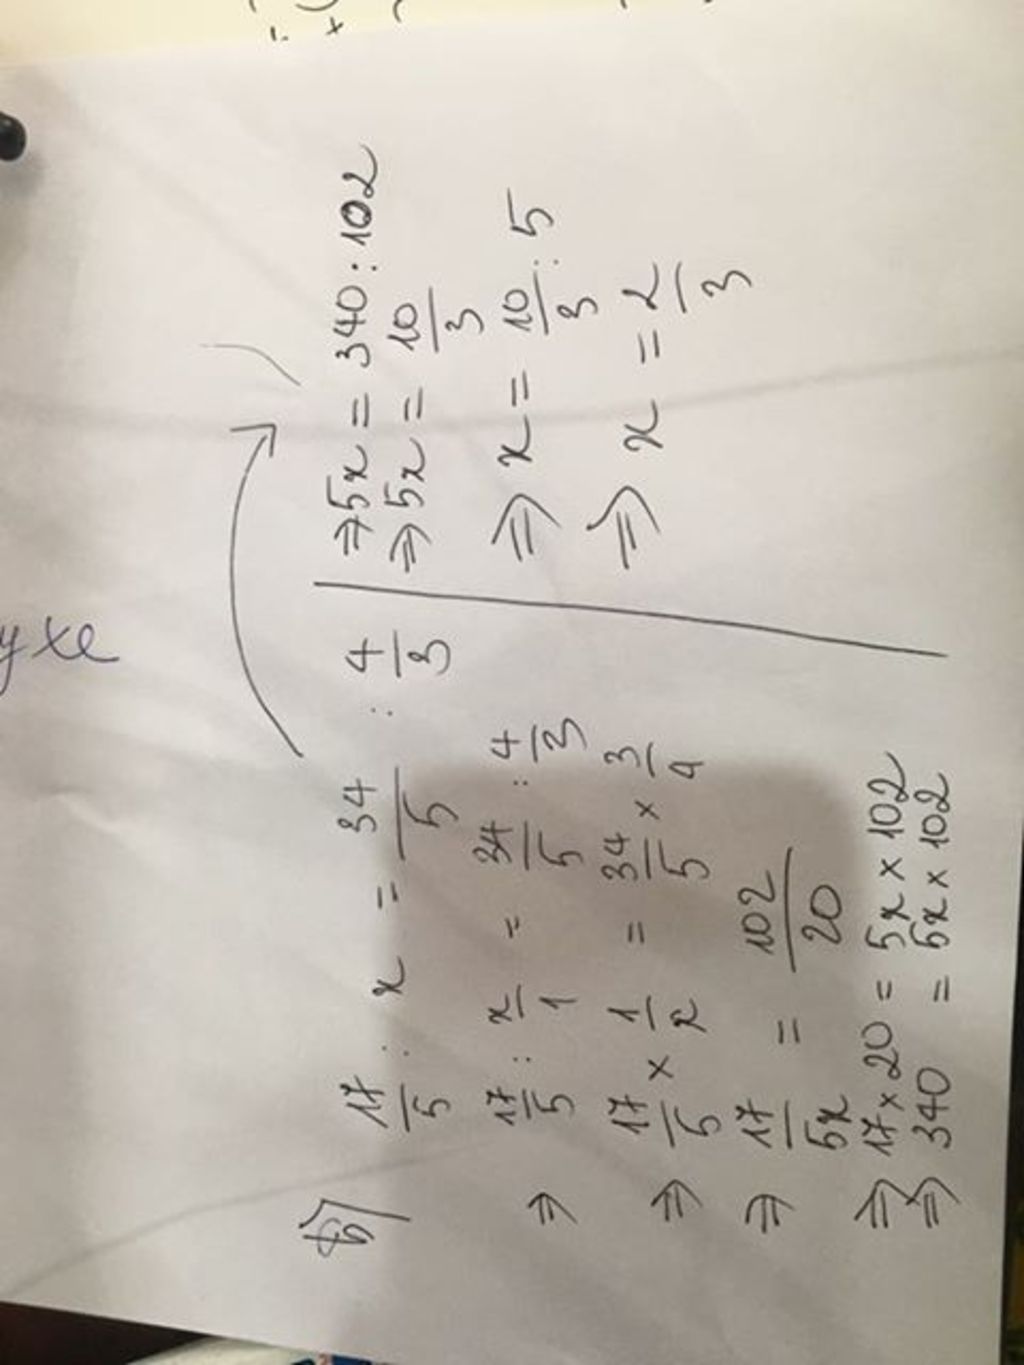 yxe
b) 17/5 : x = 34/5 : 4/3
⇒ 17/5 : x/1 = 34/5 : 4/3
⇒ 17/5 × 1/x = 34/5 × 3/4
⇒ 17/5x = 102/20
⇒ 17 × 20 = 5x × 102
⇒ 340 = 5x × 102
⇒ 5x = 340 : 102
⇒ 5x = 10/3
⇒ x = 10/3 : 5
⇒ x = 2/3